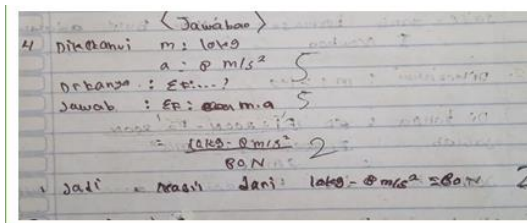 (Jawaban)
4 Diketahui m : 10kg
a : 8 m/s² 5
Ditanya : ΣF : ... ?
Jawab : ΣF : m.a 5
= 10kg - 8 m/s² 2
80.N
Jadi Hasil dari : 10kg - 8 m/s² = 80.N 2